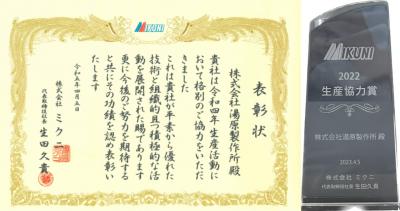 MIKUNI
表彰状
株式会社湯原製作所殿
貴社は令和四年生産活動に
おいて格別のご協力をいただ
きました
これは貴社が平素から優れた
技術と組織的且つ積極的な活
動を展開された賜であります
更に今後のご努力を期待する
と共にその功績を認め表彰い
たします
令和五年四月五日
株式会社ミクニ
代表取締役社長 生田久貴
MIKUNI
2022
生産協力賞
株式会社湯原製作所 殿
2023.4.5
株式会社 ミクニ
代表取締役社長 生田久貴